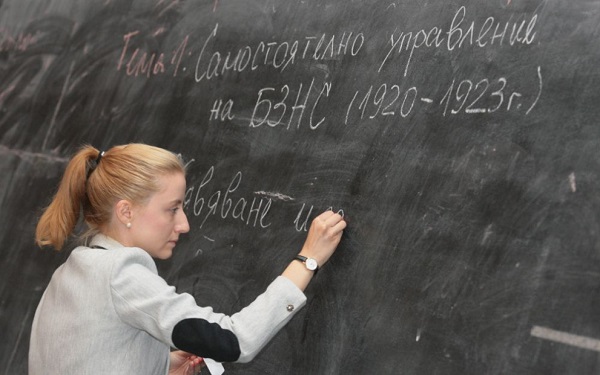 Тема 1: Самостоятелно управление
на БЗНС (1920-1923г.)
и